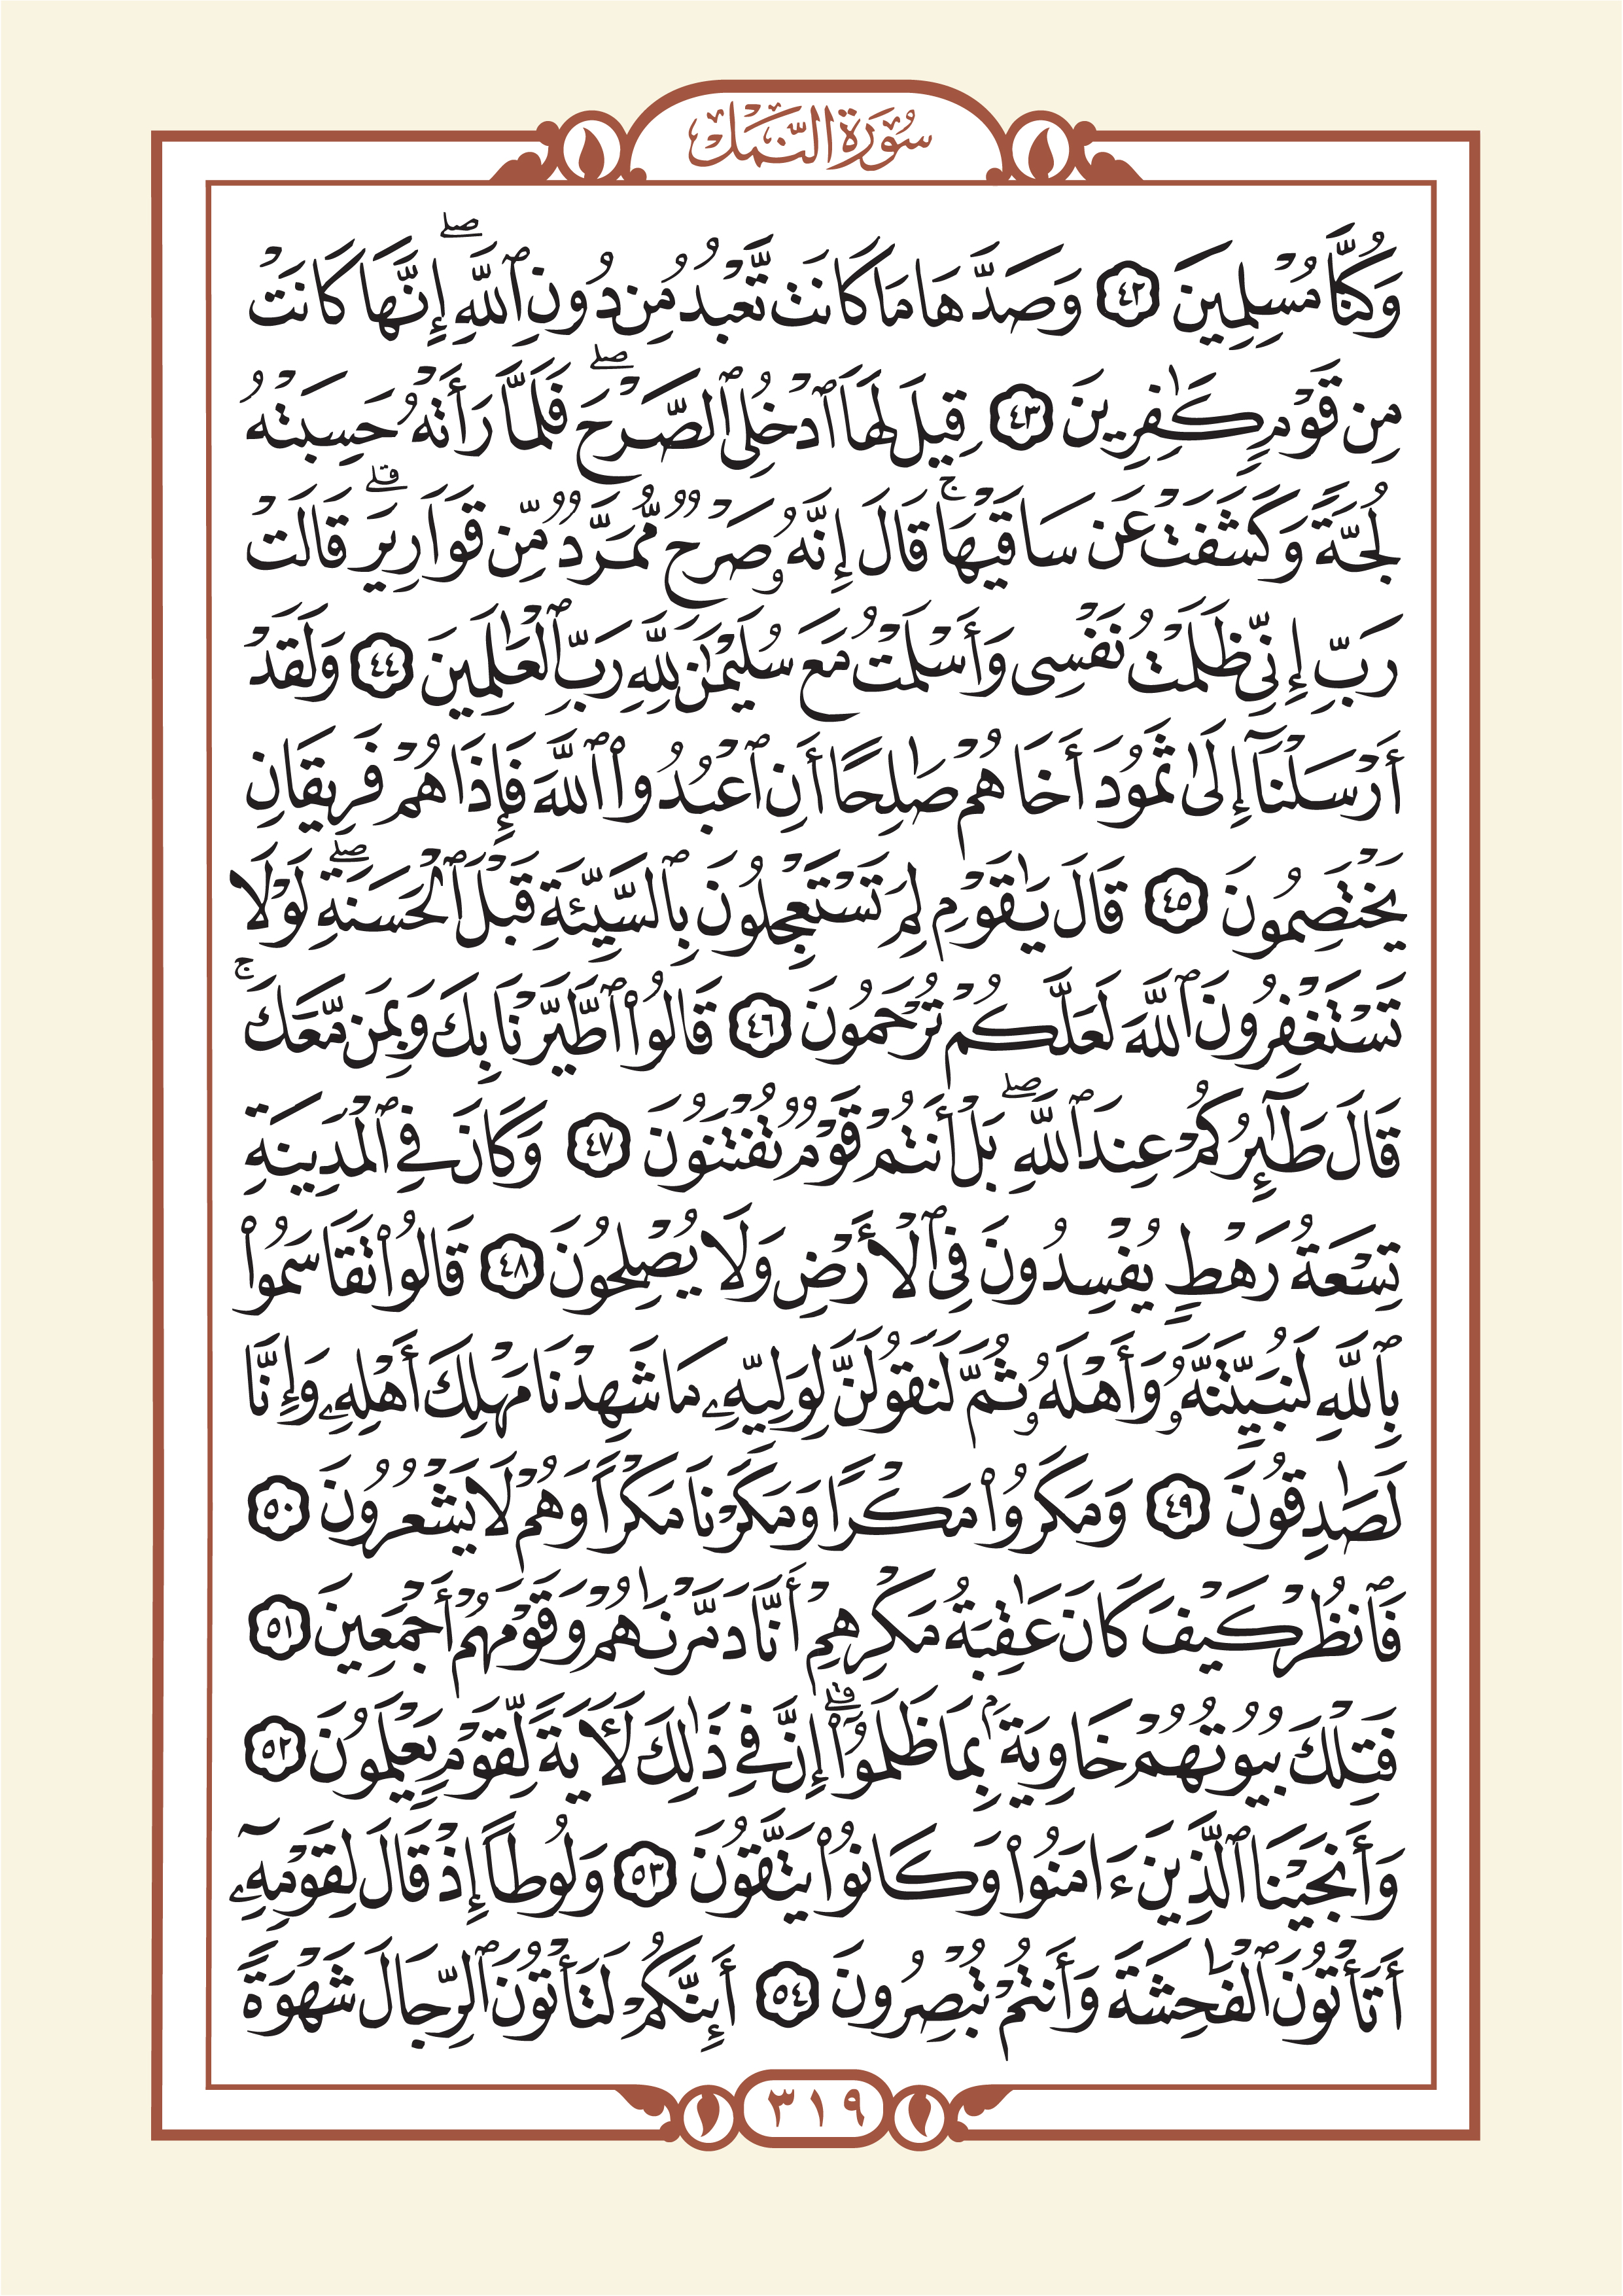 سُورَةُ النَّمْلِ
وَكُنَّا مُسْلِمِينَ ٤٢ وَصَدَّهَا مَا كَانَت تَّعْبُدُ مِن دُونِ ٱللَّهِۖ إِنَّهَا كَانَتْ
مِن قَوْمٍ كَٰفِرِينَ ٤٣ قِيلَ لَهَا ٱدْخُلِى ٱلصَّرْحَۖ فَلَمَّا رَأَتْهُ حَسِبَتْهُ
لُجَّةً وَكَشَفَتْ عَن سَاقَيْهَاۚ قَالَ إِنَّهُۥ صَرْحٌ مُّمَرَّدٌ مِّن قَوَارِيرَۗ قَالَتْ
رَبِّ إِنِّى ظَلَمْتُ نَفْسِى وَأَسْلَمْتُ مَعَ سُلَيْمَٰنَ لِلَّهِ رَبِّ ٱلْعَٰلَمِينَ ٤٤ وَلَقَدْ
أَرْسَلْنَآ إِلَىٰ ثَمُودَ أَخَاهُمْ صَٰلِحًا أَنِ ٱعْبُدُوا۟ ٱللَّهَ فَإِذَا هُمْ فَرِيقَانِ
يَخْتَصِمُونَ ٤٥ قَالَ يَٰقَوْمِ لِمَ تَسْتَعْجِلُونَ بِٱلسَّيِّئَةِ قَبْلَ ٱلْحَسَنَةِۖ لَوْلَا
تَسْتَغْفِرُونَ ٱللَّهَ لَعَلَّكُمْ تُرْحَمُونَ ٤٦ قَالُوا۟ ٱطَّيَّرْنَا بِكَ وَبِمَن مَّعَكَۚ
قَالَ طَٰٓئِرُكُمْ عِندَ ٱللَّهِۖ بَلْ أَنتُمْ قَوْمٌ تُفْتَنُونَ ٤٧ وَكَانَ فِى ٱلْمَدِينَةِ
تِسْعَةُ رَهْطٍ يُفْسِدُونَ فِى ٱلْأَرْضِ وَلَا يُصْلِحُونَ ٤٨ قَالُوا۟ تَقَاسَمُوا۟
بِٱللَّهِ لَنُبَيِّتَنَّهُۥ وَأَهْلَهُۥ ثُمَّ لَنَقُولَنَّ لِوَلِيِّهِۦ مَا شَهِدْنَا مَهْلِكَ أَهْلِهِۦ وَإِنَّا
لَصَٰدِقُونَ ٤٩ وَمَكَرُوا۟ مَكْرًا وَمَكَرْنَا مَكْرًا وَهُمْ لَا يَشْعُرُونَ ٥٠
فَٱنظُرْ كَيْفَ كَانَ عَٰقِبَةُ مَكْرِهِمْ أَنَّا دَمَّرْنَٰهُمْ وَقَوْمَهُمْ أَجْمَعِينَ ٥١
فَتِلْكَ بُيُوتُهُمْ خَاوِيَةًۢ بِمَا ظَلَمُوٓا۟ۗ إِنَّ فِى ذَٰلِكَ لَأٓيَةً لِّقَوْمٍ يَعْلَمُونَ ٥٢
وَأَنجَيْنَا ٱلَّذِينَ ءَامَنُوا۟ وَكَانُوا۟ يَتَّقُونَ ٥٣ وَلُوطًا إِذْ قَالَ لِقَوْمِهِۦٓ
أَتَأْتُونَ ٱلْفَٰحِشَةَ وَأَنتُمْ تُبْصِرُونَ ٥٤ أَئِنَّكُمْ لَتَأْتُونَ ٱلرِّجَالَ شَهْوَةً
٣١٩